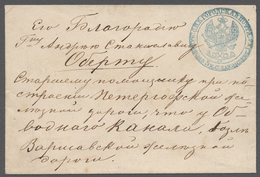 Его Благородію
Гну Андрею Станиславичу
Оберту
Старшему помощнику при по-
строеніи Петергофской же-
лезной дороги, что у Об-
воднаго Канала, возлѣ
Варшавской железной
дороги.